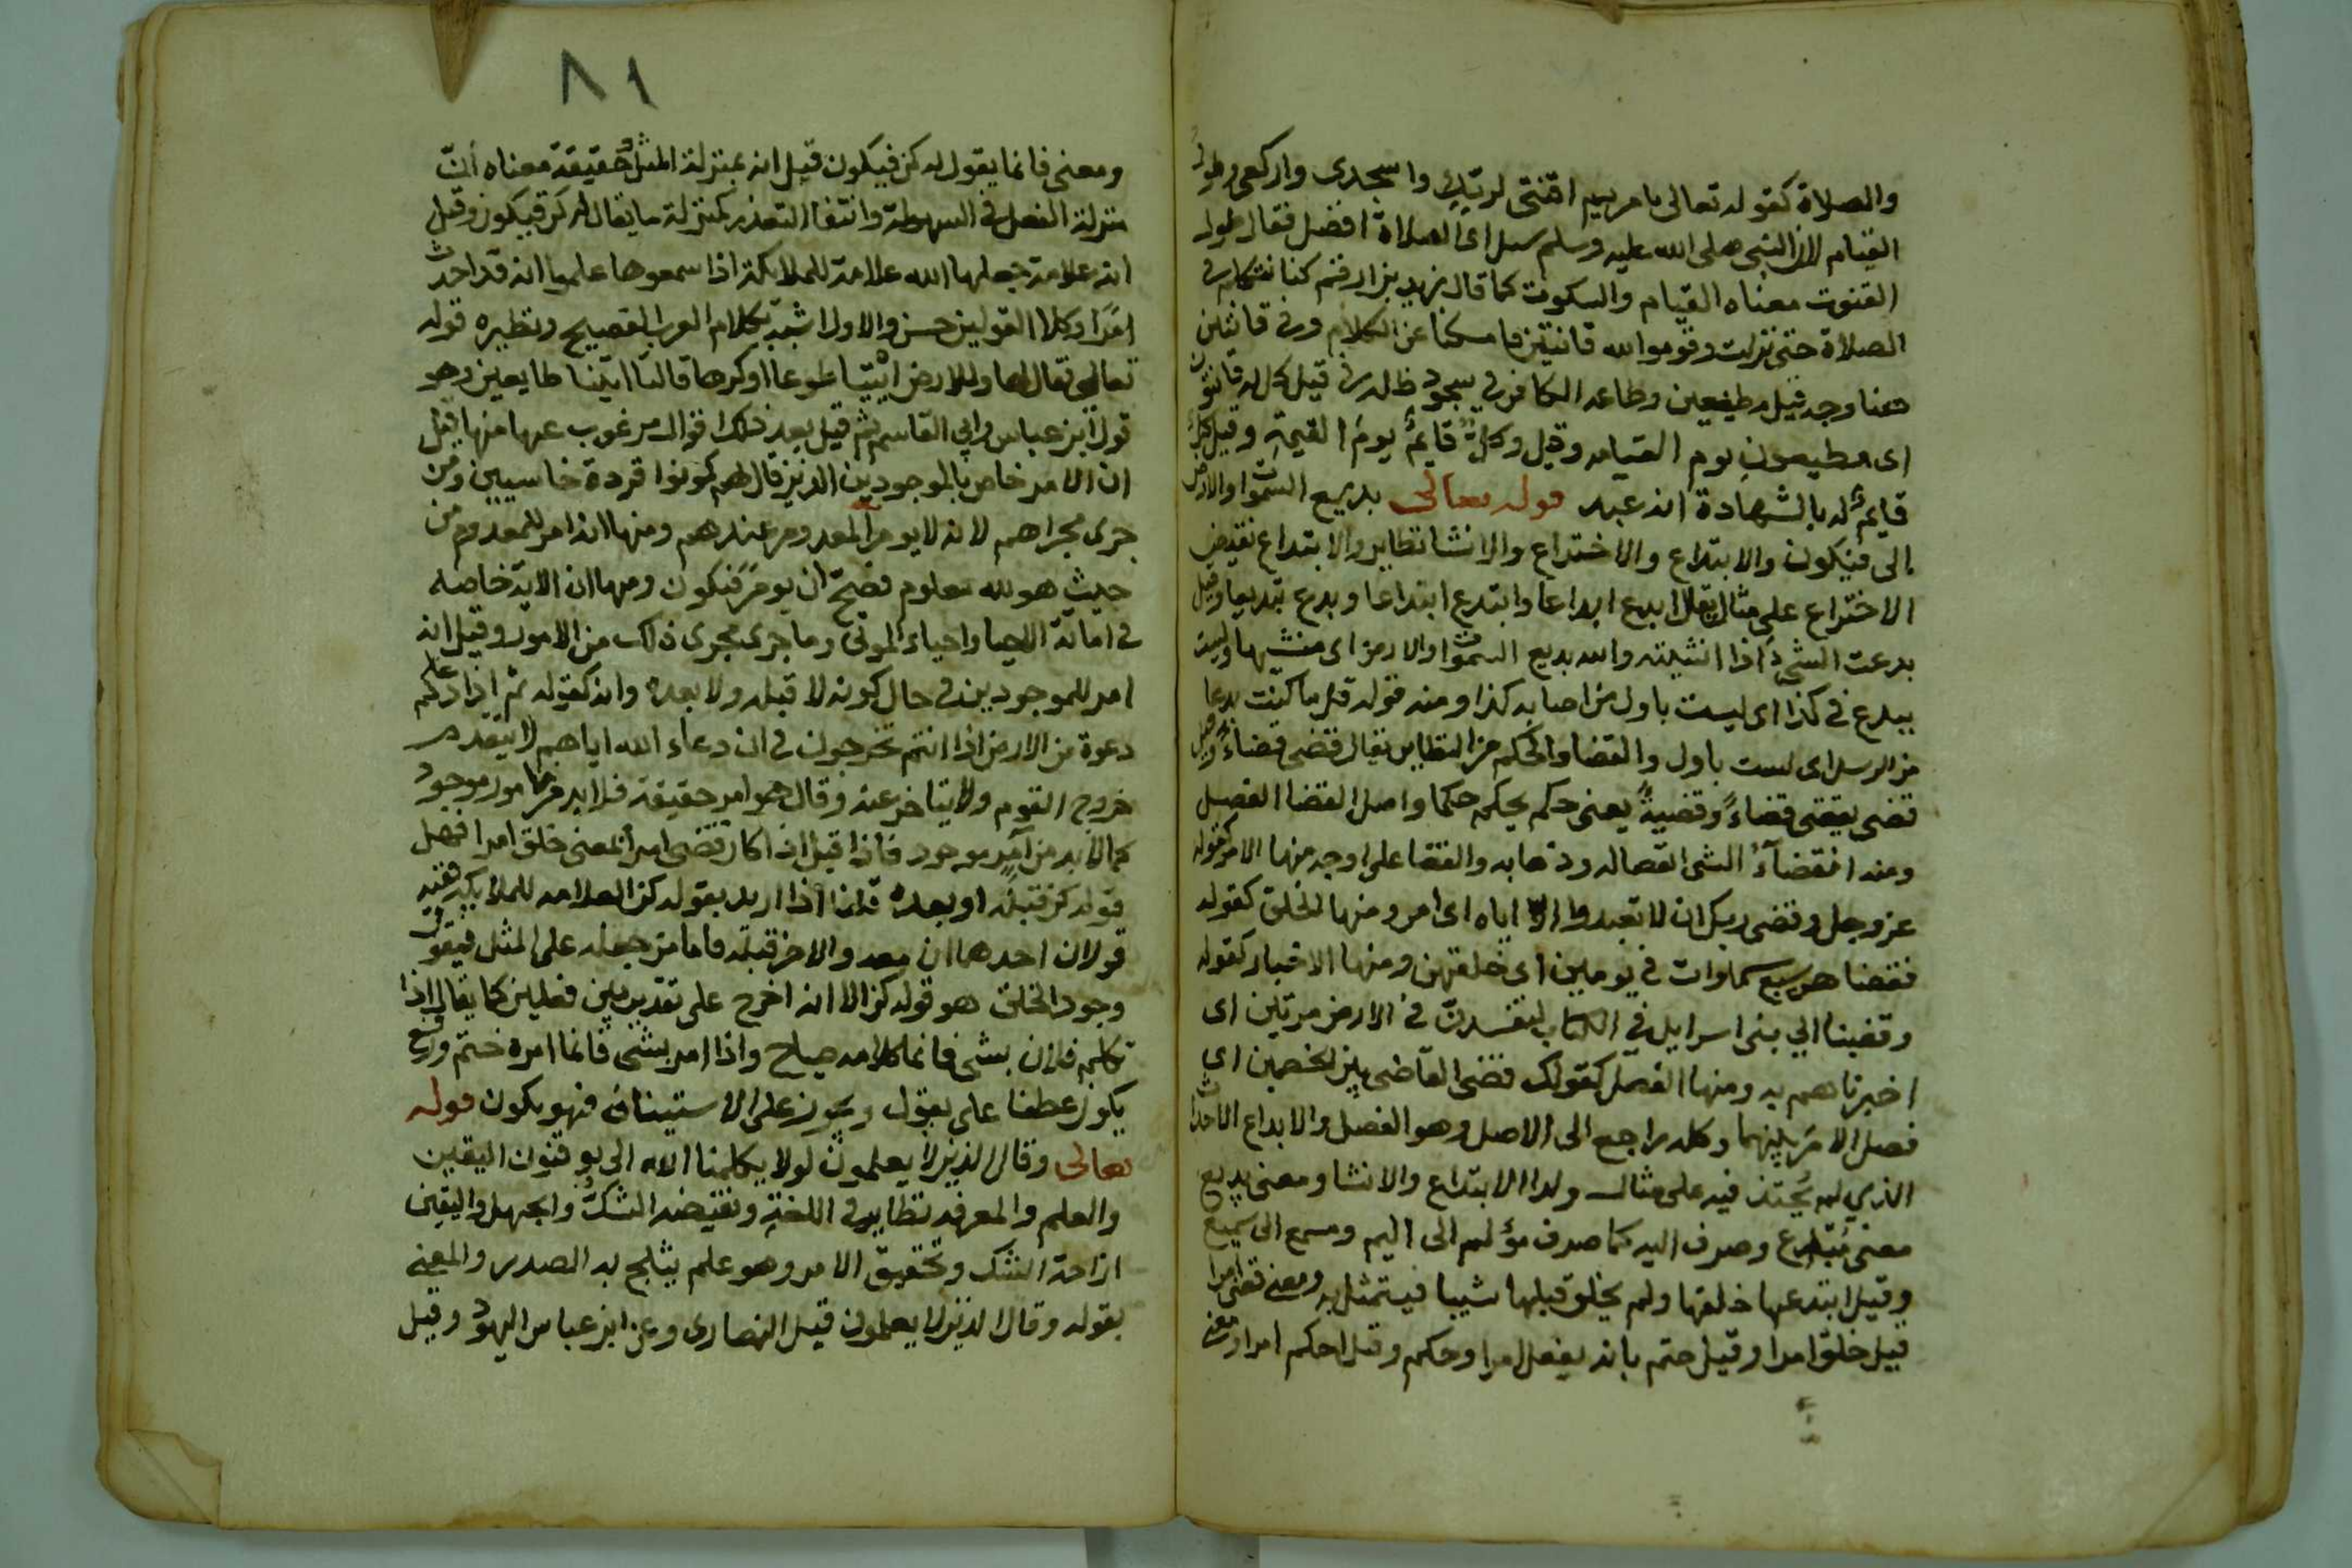 والصلاة كقوله تعالى يا مريم اقنتى لربك واسجدى واركعى وطول
القيام لان النبى صلى الله عليه وسلم سئل اى الصلاة افضل فقال طول
القنوت معناه القيام والسكوت كما قال زيد بن ارقم كنا نتكلم فى
الصلاة حتى نزلت وقوموا لله قانتين فامسكنا عن الكلام وفى قانتين
هنا وجه قيل مطيعين وطاعه الكافر فى سجود ظله فى قيل كل له قانتون
اى مطيعون يوم القيامه وقيل وكل قايم يوم القيمة وقيل كل
قايم له بالشهادة انه عبد قوله تعالى بديع السموات والارض
الى فيكون والابتداع والاختراع والانشا نظاير والابتداع نقيض
الاختراع على مثال يقال ابدع ابداعا وابتدع ابتداعا وبدع تبديعا وقيل
بدعت الشئ اذا انشيته والله بديع السموات والارض اى منشيها وليس
ببدع فى كذا اى ليست باول من اصابه كذا ومنه قوله قل ما كنت بدعا
من الرسل اى لست باول والقضا والحكم من النظاير يقال قضى قضاء وقيل
قضى يقضى قضاءً وقضيةً يعنى حكم يحكم حكما واصل القضا الفصل
ومنه انقضاء الشى انفصاله وذهابه والقضا على اوجه منها الامر كقوله
عز وجل وقضى ربك ان لا تعبدوا الا اياه اى امر ومنها الخلق كقوله
فقضاهن سبع سماوات فى يومين اى خلقهن ومنها الاخبار كقوله
وقضينا الي بنى اسرايل في الكتاب لتفسدن فى الارض مرتين اى
اخبرناهم به ومنها الفصل كقولك قضى القاضى بين الخصمين اى
فصل الامر بينهما وكله راجع الى الاصل وهو الفصل والابداع الاحداث
الذي لم يُحتذ فيه على مثال ولدا الابتداع والانشا ومعنى بديع
معنى مُبتدع وصرف اليه كما صرف مؤلم الى اليم ومسمع الى سميع
وقيل ابتدعها خلقها ولم يخلق قبلها شييا فيتمثل به ومعنى قضى امرا
قيل خلق امرا وقيل حتم بانه يفعل امرا وحكم وقيل احكم امرا ومعنى
٨١
ومعنى فانما يقول له كن فيكون قيل انه بمنزلة المثل وحقيقة معناه ان
منزلة الفعل فى السهولة وانتفا التعذر كمنزلة ما يقال له كن فيكون وقيل
انه علامة جعلها الله علامة للملايكة اذا سمعوها علموا انه قد احدث
امرًا وكلا القولين حسن والاول اشبه بكلام العرب الفصيح ونظيره قوله
تعالى فقال لها وللارض ائتيا طوعا او كرها قالتا اتينا طايعين وهو
قول ابن عباس وابي القاسم ثم قيل بعد ذلك اقوال مرغوب عنها منها قيل
ان الامر خاص بالموجودين الذين قال لهم كونوا قردة خاسيين ومن
جرى مجراهم لانه لا يومر المعدوم عندهم ومنها انه امر للمعدوم من
حيث هو لله معلوم فصح ان يومر فيكون ومنها ان الاية خاصه
فى اماتة الاحيا واحياء الموتى وما جرى مجرى ذلك من الامور وقيل انه
امر للموجودين فى حال كونه لا قبله ولا بعده وانه كقوله ثم اذا دعاكم
دعوة من الارض اذا انتم تخرجون فى ان دعاء الله اياهم لا يتقدم
خروج القوم ولا يتاخر عنه وقال هو امر حقيقة فلا بد من مامور موجود
كما لا بد من آمر موجود فاذا قيل اذا كان قضى امرا بمعنى خلق امرا فهل
قوله كن قبله او بعده قلنا اذا اريد بقوله كن العلامه للملايكة ففيه
قولان احدهما ان معه والاخر قبله فاما من جعله على المثل فيقول
وجود الخلق هو قوله كن الا انه اخرج على تقدير بين فعلين كما يقال اذا
تكلم فلان بشى فانما كلامه صياح واذا امر بشى فانما امره حتم ورفع
يكون عطفا على يقول ويجوز على الاستيناف فهو يكون قوله
تعالى وقال الذين لا يعلمون لولا يكلمنا الله الى يوقنون اليقين
والعلم والمعرفه نظاير فى اللغة ونقيضه الشك والجهل واليقين
ازاحة الشك وتحقيق الامر وهو علم يثلج به الصدر والمعنى
بقوله وقال الذين لا يعلمون قيل النصارى وعن ابن عباس اليهود وقيل